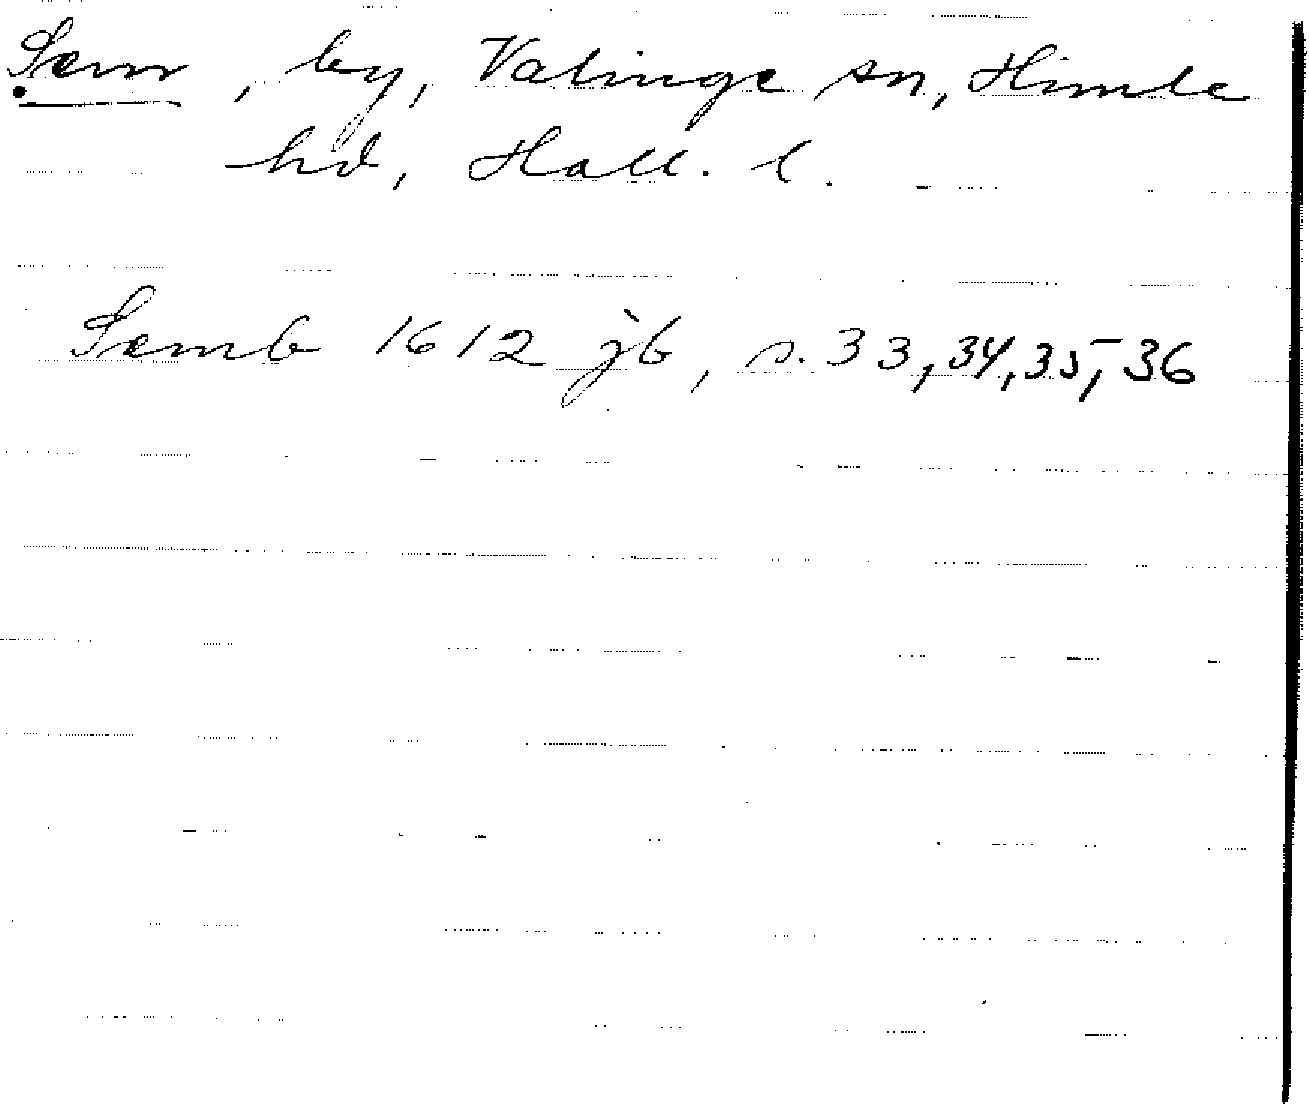 Sem, by, Valinge sn, Himle
hd, Hall. l.
Semb 1612 jb, s. 33,34,35,36